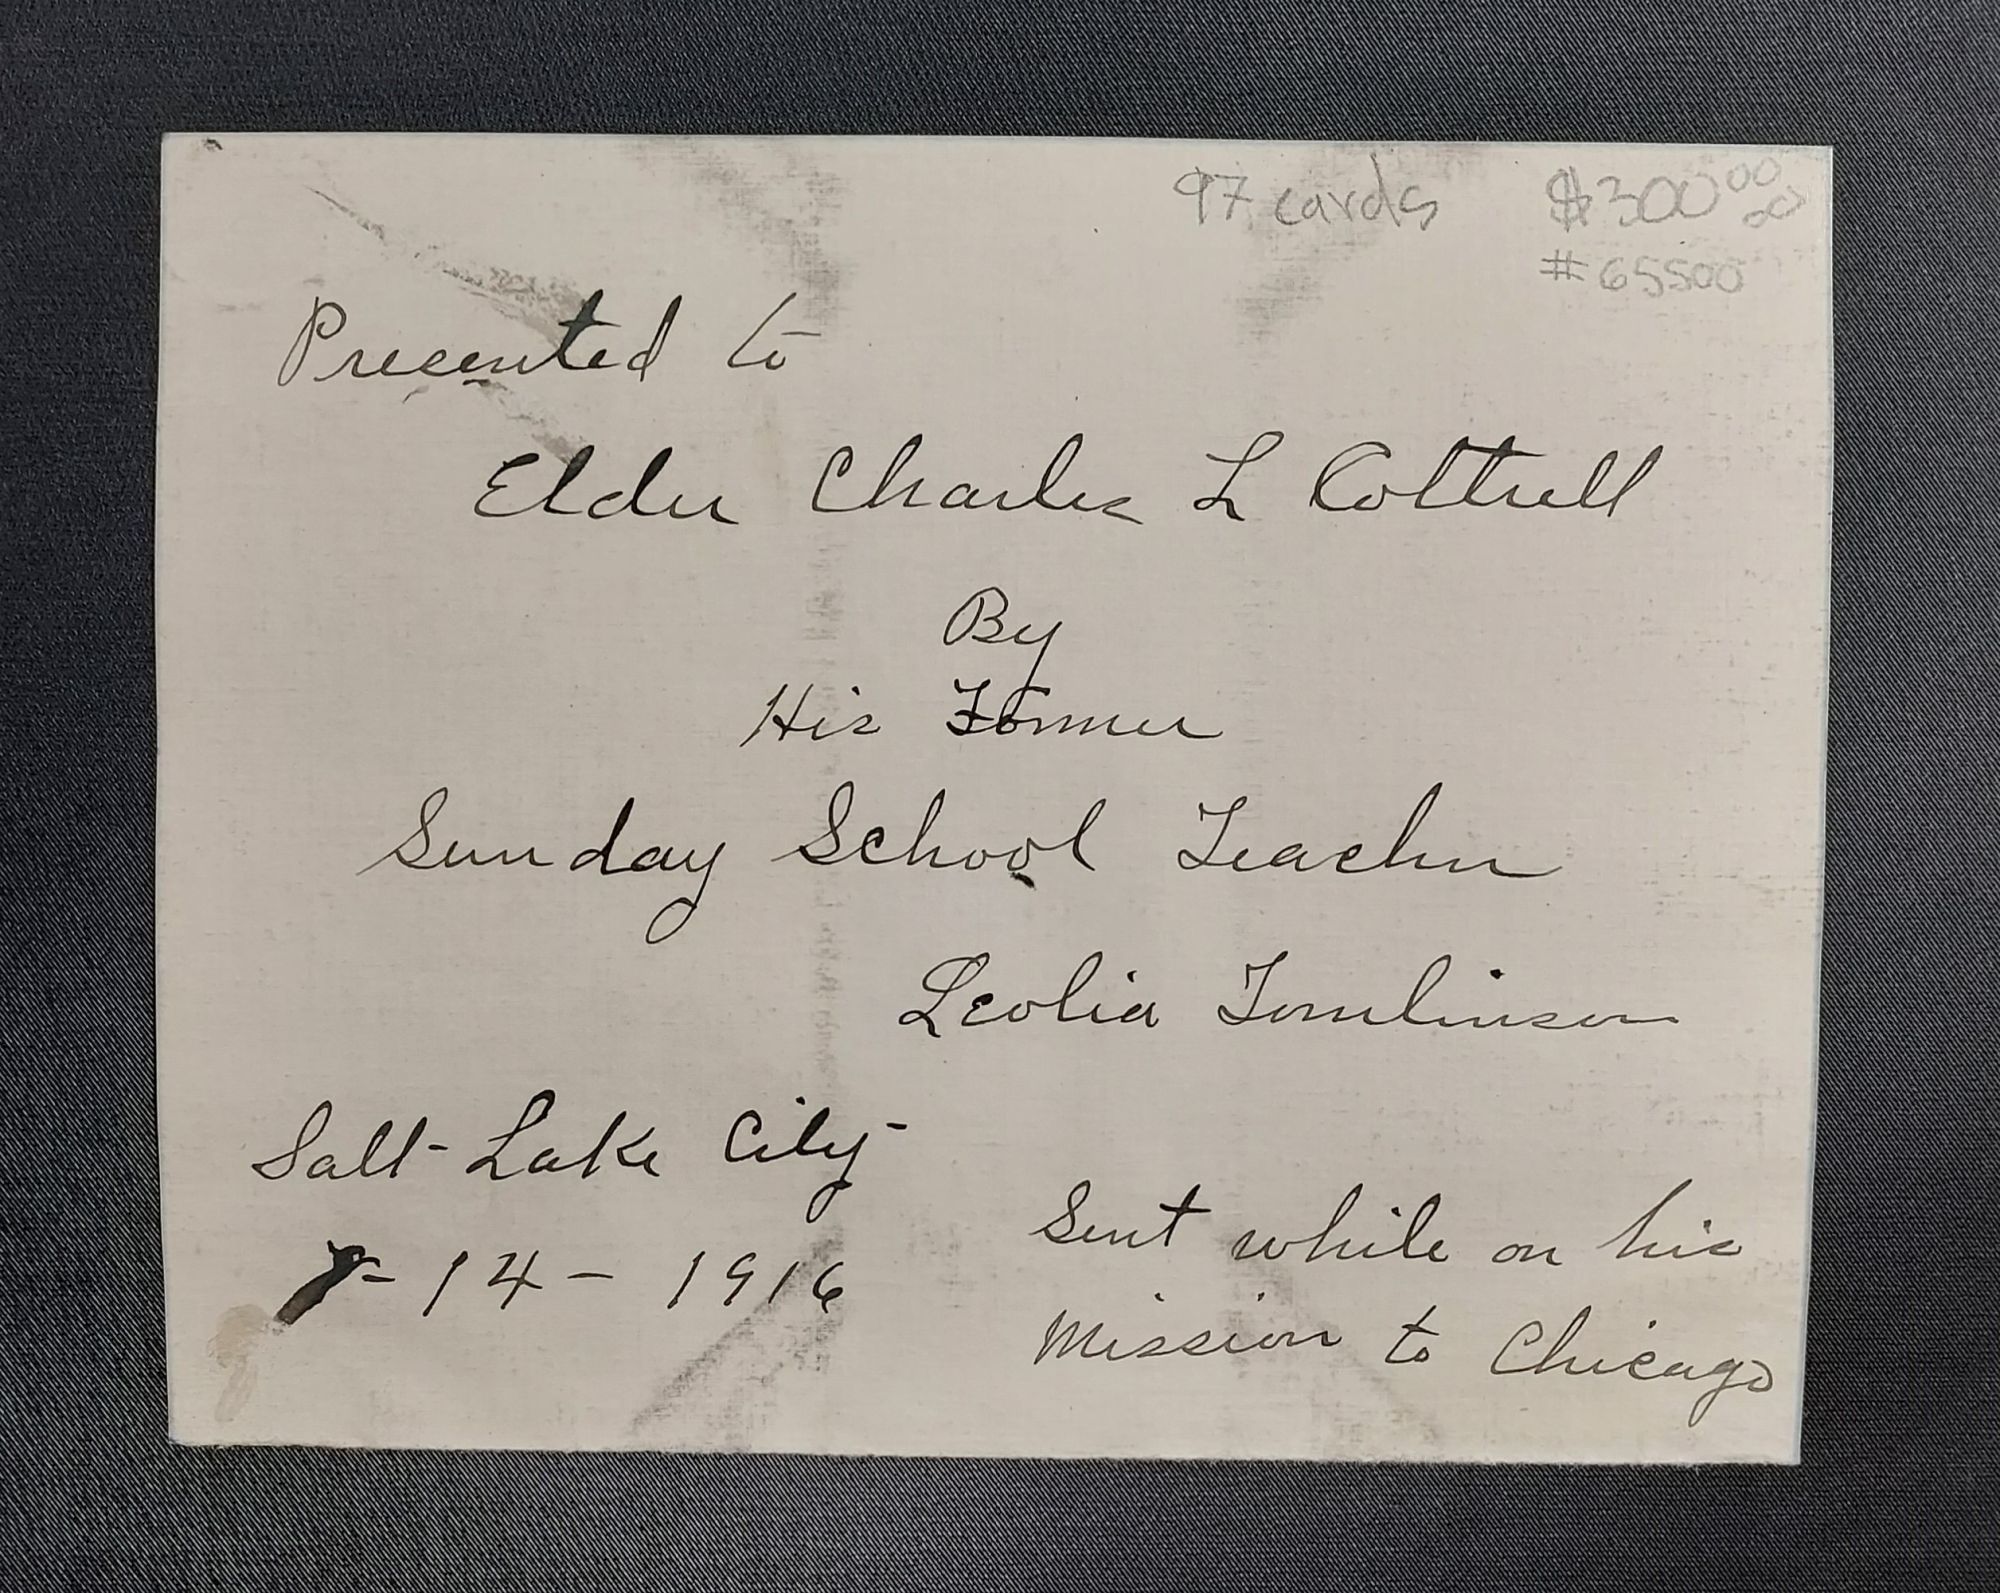 97 cards $300.00
#65500
Presented to
Elder Charles L Cottrell
By
His Former
Sunday School Teacher
Leolia Tomlinson
Salt Lake City
- 14 - 1916
Sent while on his
Mission to Chicago